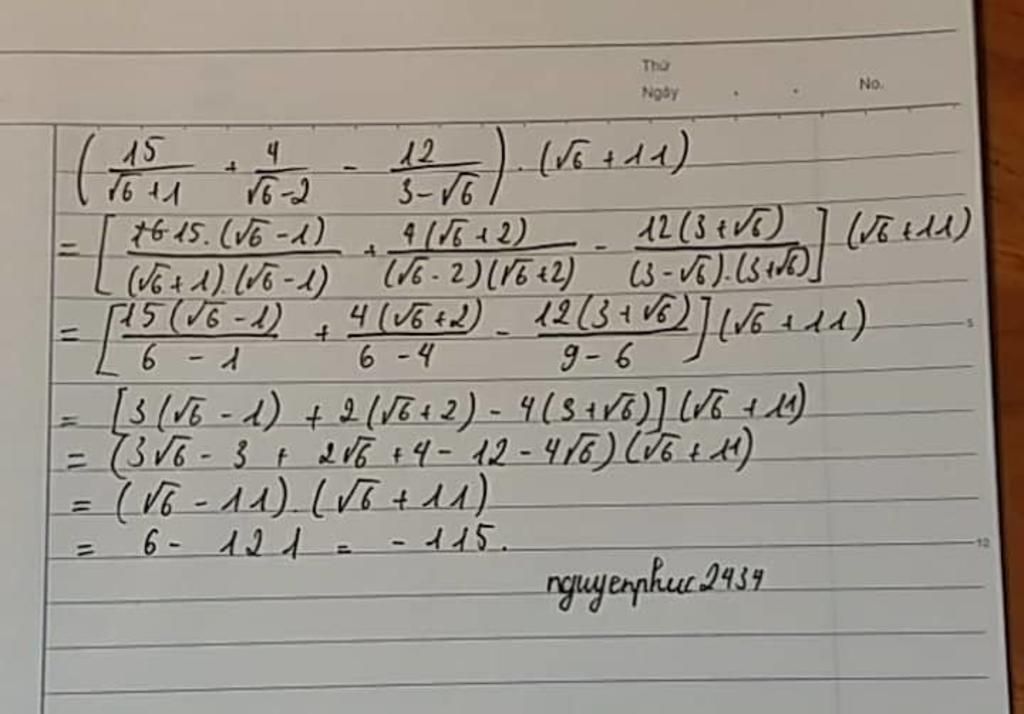 Thứ
Ngày . . No.
(15/(√6 + 1) + 4/(√6 - 2) - 12/(3 - √6)) . (√6 + 11)
= [15.(√6 - 1)/((√6 + 1).(√6 - 1)) + 4(√6 + 2)/((√6 - 2)(√6 + 2)) - 12(3 + √6)/((3 - √6).(3 + √6))] (√6 + 11)
= [15(√6 - 1)/(6 - 1) + 4(√6 + 2)/(6 - 4) - 12(3 + √6)/(9 - 6)] (√6 + 11)
5
= [3(√6 - 1) + 2(√6 + 2) - 4(3 + √6)] (√6 + 11)
= (3√6 - 3 + 2√6 + 4 - 12 - 4√6) (√6 + 11)
= (√6 - 11) . (√6 + 11)
= 6 - 121 = - 115.
10
nguyenphuc2434